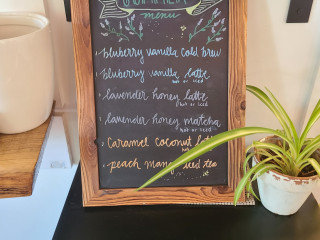 menu
blueberry vanilla cold brew
blueberry vanilla latte
hot or iced
lavender honey latte
hot or iced
lavender honey matcha
hot or iced
caramel coconut
peach iced tea